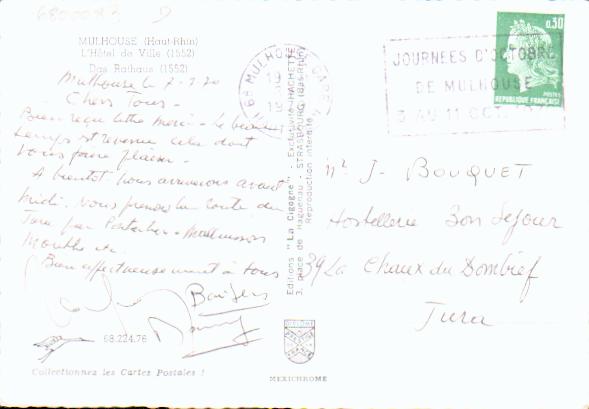 6800083
MULHOUSE (Haut-Rhin)
L'Hôtel de Ville (1552)
Das Rathaus (1552)
Mulhouse le 7-9-70
Chers Tous -
Bien reçu lettre merci - le beau
temps est revenu cela doit
vous faire plaisir -
A bientôt nous arriverons avant
midi. Nous prenons la route du
Jura par Pontarlier - Malbuisson
Mouthe etc
Bien affectueusement à tous
Baisers
68.224.76
Collectionnez les Cartes Postales !
Editions "La Cigogne" - Exclusivité HACHETTE
3, place de Haguenau - STRASBOURG (Bas-Rhin)
Reproduction interdite
MEXICHROME
68 MULHOUSE GARE
JOURNEES D'OCTOBRE
DE MULHOUSE
3 AU 11 OCT.
0,30
POSTES
REPUBLIQUE FRANÇAISE
J- BOUQUET
Hostellerie Bon Séjour
39 La Chaux du Dombief
Jura